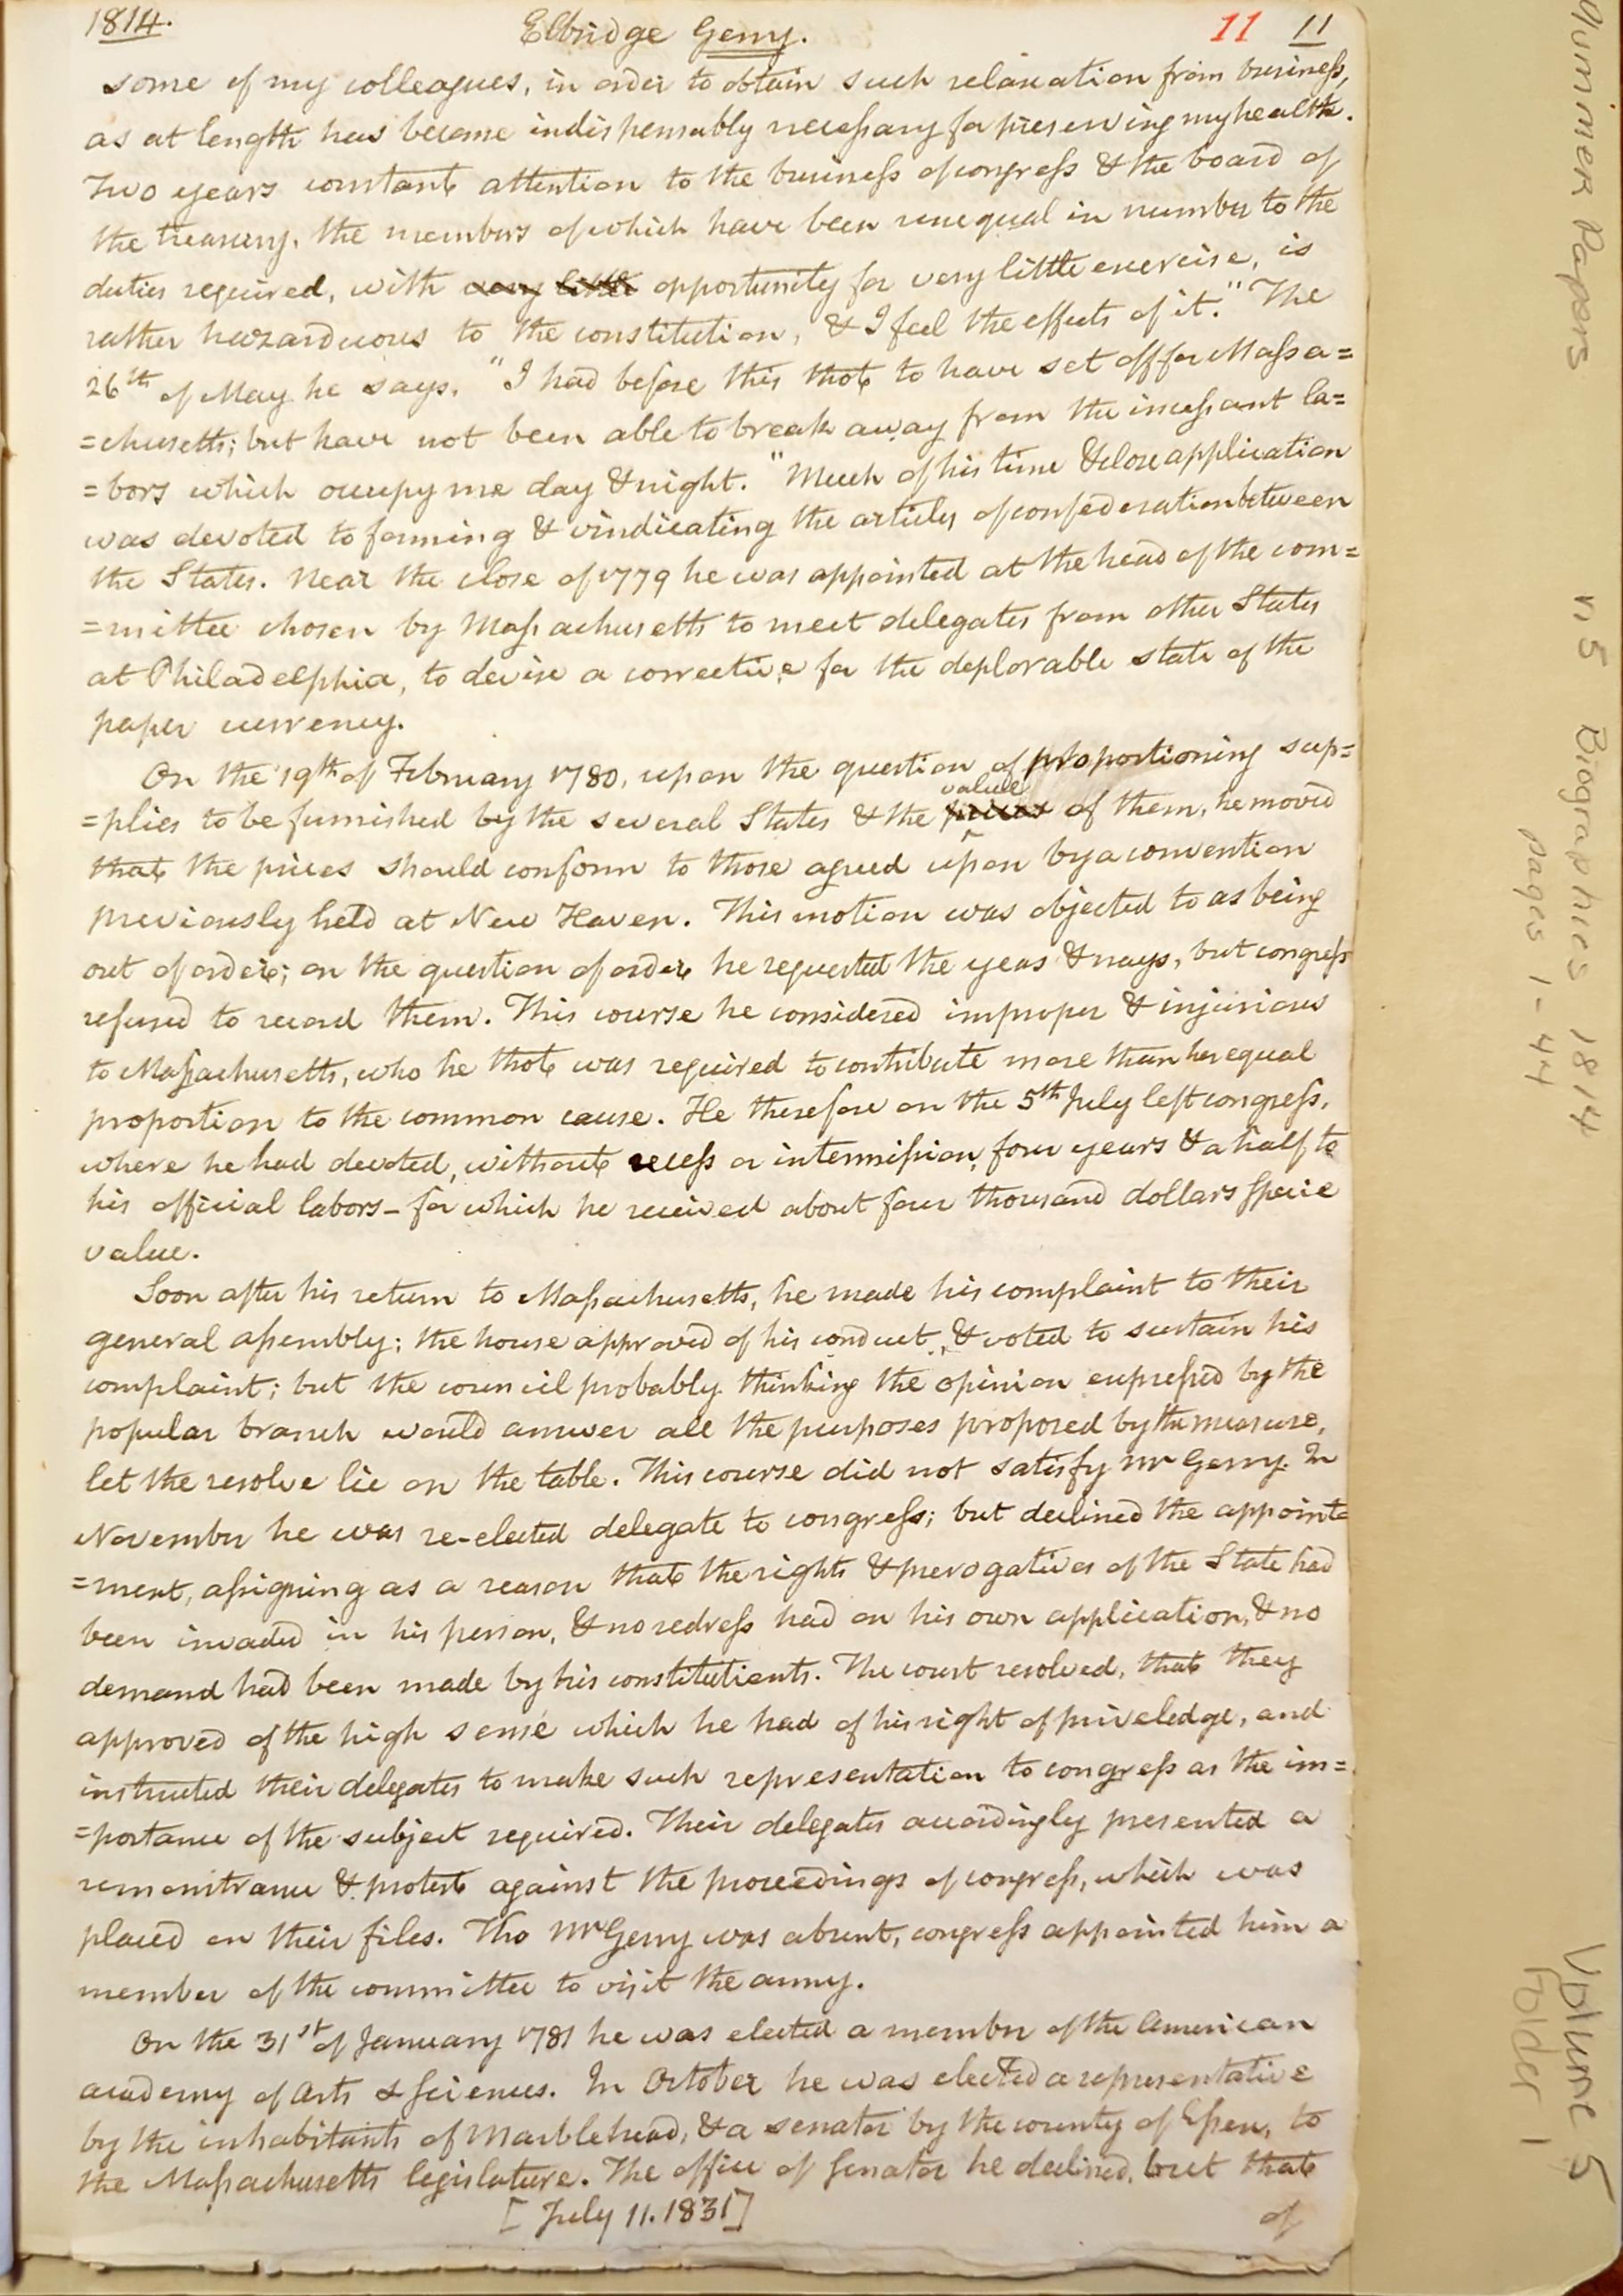 1814.
Elbridge Gerry.
11 11
some of my colleagues, in order to obtain such relaxation from business,
as at length has become indispensably necessary for preserving my health.
Two years constant attention to the business of congress & the board of
the treasury, the members of which have been unequal in number to the
duties required, with very little opportunity for very little exercise, is
rather hazarduous to the constitution, & I feel the effects of it." The
26th of May he says. "I had before this thot to have set off for Massa=
=chusetts; but have not been able to break away from the incessant la=
=bors which occupy me day & night." Much of his time & close application
was devoted to forming & vindicating the articles of confederation between
the States. Near the close of 1779 he was appointed at the head of the com=
=mittee chosen by Massachusetts to meet delegates from other States
at Philadelphia, to devise a corrective for the deplorable state of the
paper currency.
On the 19th of February 1780, upon the question of proportioning sup=
value
=plies to be furnished by the several States & the prices of them, he moved
that the prices should conform to those agreed upon by a convention
previously held at New Haven. This motion was objected to as being
out of order; on the question of order he requested the yeas & nays, but congress
refused to record them. This course he considered improper & injurious
to Massachusetts, who he thot was required to contribute more than her equal
proportion to the common cause. He therefore on the 5th July left congress,
where he had devoted, without recess or intermission, four years & a half to
his official labors - for which he received about four thousand dollars specie
value.
Soon after his return to Massachusetts, he made his complaint to their
general assembly; the house approved of his conduct, & voted to sustain his
complaint; but the council probably thinking the opinion expressed by the
popular branch would answer all the purposes proposed by the measure,
let the resolve lie on the table. This course did not satisfy Mr Gerry. In
November he was re-elected delegate to congress; but declined the appoint=
=ment, assigning as a reason that the rights & prerogatives of the State had
been invaded in his person, & no redress had on his own application, & no
demand had been made by his constitutients. The court resolved, that they
approved of the high sense which he had of his right of priveledge, and
instructed their delegates to make such representation to congress as the im=
=portance of the subject required. Their delegates accordingly presented a
remonstrance & protest against the proceedings of congress, which was
placed on their files. Tho Mr Gerry was absent, congress appointed him a
member of the committee to visit the army.
On the 31st of January 1781 he was elected a member of the American
academy of Arts & Sciences. In October he was elected a representative
by the inhabitants of Marblehead, & a senator by the county of Essex, to
the Massachusetts legislature. The office of Senator he declined, but that
[July 11. 1831]
of
Papers
n 5 Biographies 1814
pages 1-44
Volume 5
Folder 1